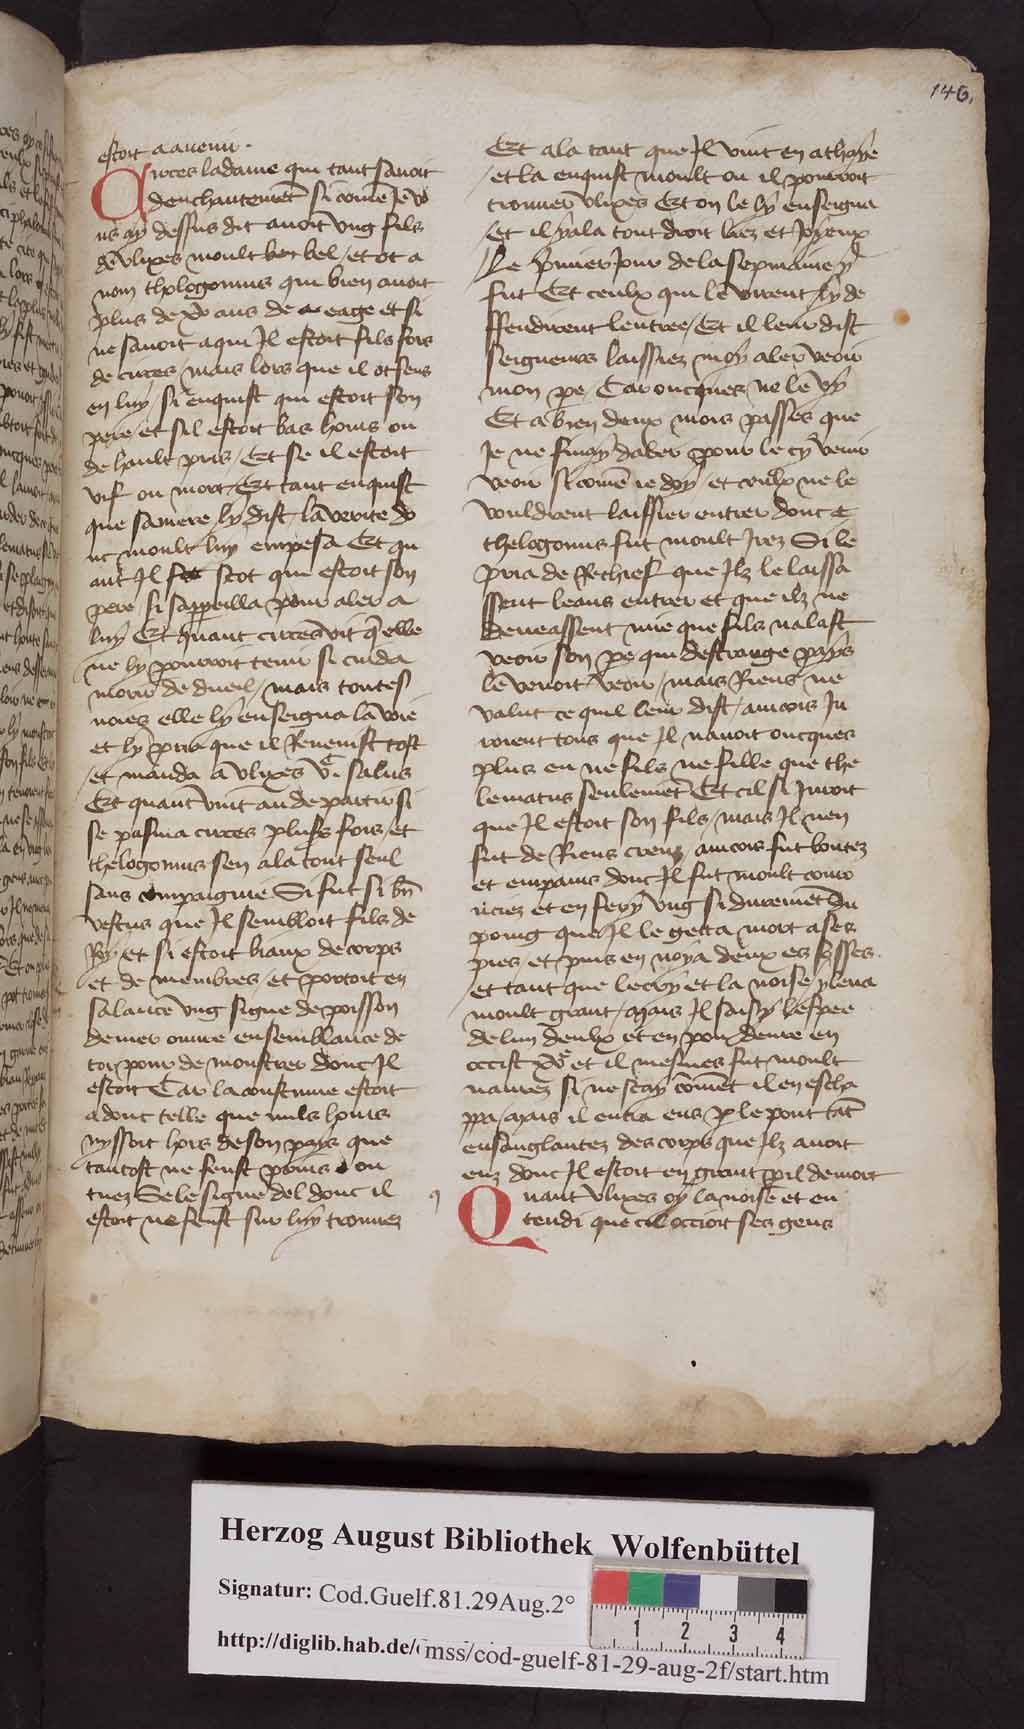 146.
estoit a auenir.
Circes la dame qui tant sauoit
denchantemēt si cōme ie vo
us ay dessus dit auoit vng fils
de vlixes moult ber bel / et ot a
nom thelogonus qui bien auoit
plus de xv ans de eage et si
ne sauoit a qui Il estoit fils fors
de circes mais lors que il ot sens
en luy si enquist qui estoit son
pere et sil estoit bas homs ou
de hault pris / Et se il estoit
vif ou mort / Et tant enquist
que sa mere ly dist la verite do
nt moult luy empesa Et qu
ant Il scot qui estoit son
pere si sappeilla pour aler a
luy Et quant circes vit q̄ elle
ne ly pourroit tenir si cuida
morir de dueil / mais toutes
uoies elle ly enseigna la voie
et ly pria que il Reuenist tost
et manda a vlixes vᶜ. salus
Et quant vint au departir si
se pasma circes plusʳˢ fois / et
thelogonus sen ala tout seul
sans compaignie Si fut si bn̄
vestus que Il sembloit fils de
Roy et si estoit biaux de corps
et de membres / et portoit en
sa lance vng signe de poisson
de mer ouure en semblance de
tor pour demonstrer dont Il
estoit Car la coustume estoit
adont telle que nuls homs
nyssoit hors de son pays que
tantost ne feust prins ou
tuez Se le signe del dont il
estoit ne feust sur luy trouuez
Et ala tant que Il vint en athaye
et la enquist moult ou il pourroit
trouuer vlixes Et on le ly enseigna
et il y ala tout droit liez et Joyeux
Le p̄mier Jour de la sepmaine y
fut Et ceulx qui le virent ly de
ffendirent lentree / Et il leur dist
seigneurs laissiez moy aler veoir
mon pe Car oncques ne le vy
Et a bien deux mois passes que
Je ne finay daler pour le cy venir
veoir si cōme ie doy / et ceulx ne le
vouldrent laissier entrer dont
thelogonus fut moult Irez Si le
pria de Rechief que Ilz le laissa
ssent leans entrer et que ilz ne
deueassent mie que fils nalast
veoir son pe qui destrange pays
le venoit veoir / mais Riens ne
valut ce quil leur dist / aincois Iu
roient tous que Il nauoit oncques
plus eu ne fils ne fille que the
lematus seulemēt Et cil si Juroit
que Il estoit son fils / mais Il nen
fut de Riens creuz aincois fut boutez
et empains dont Il fut moult cour
uciez et en fery vng si duremēt du
poing que Il le getta mort a ses
pies / et puis en noya deux es fosses.
et tant que le cry et la noise y leua
moult grant / Mais Il saisy lespee
de lun deulx et en pou deure en
occist xvᵉ et il mesmes fut moult
naurez si ne scay cōmēt il en escha
ppa / Mais il entra ens p le pont tāt
ensanglantez des corps que Ilz auoit
euz dont Il estoit en grant pil de mort
Quant vlixes oy la noise et en
tendi que cil occioit ses gens
Herzog August Bibliothek Wolfenbüttel
Signatur: Cod.Guelf.81.29Aug.2°
1 2 3 4
http://diglib.hab.de/mss/cod-guelf-81-29-aug-2f/start.htm